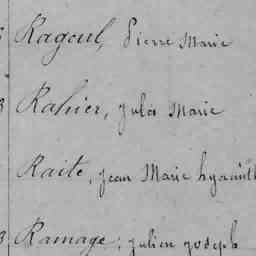 Ragoul, Pierre Marie
Rahier, Jules Marie
Raite, Jean Marie hyacinth
Ramage, Julien Joseph